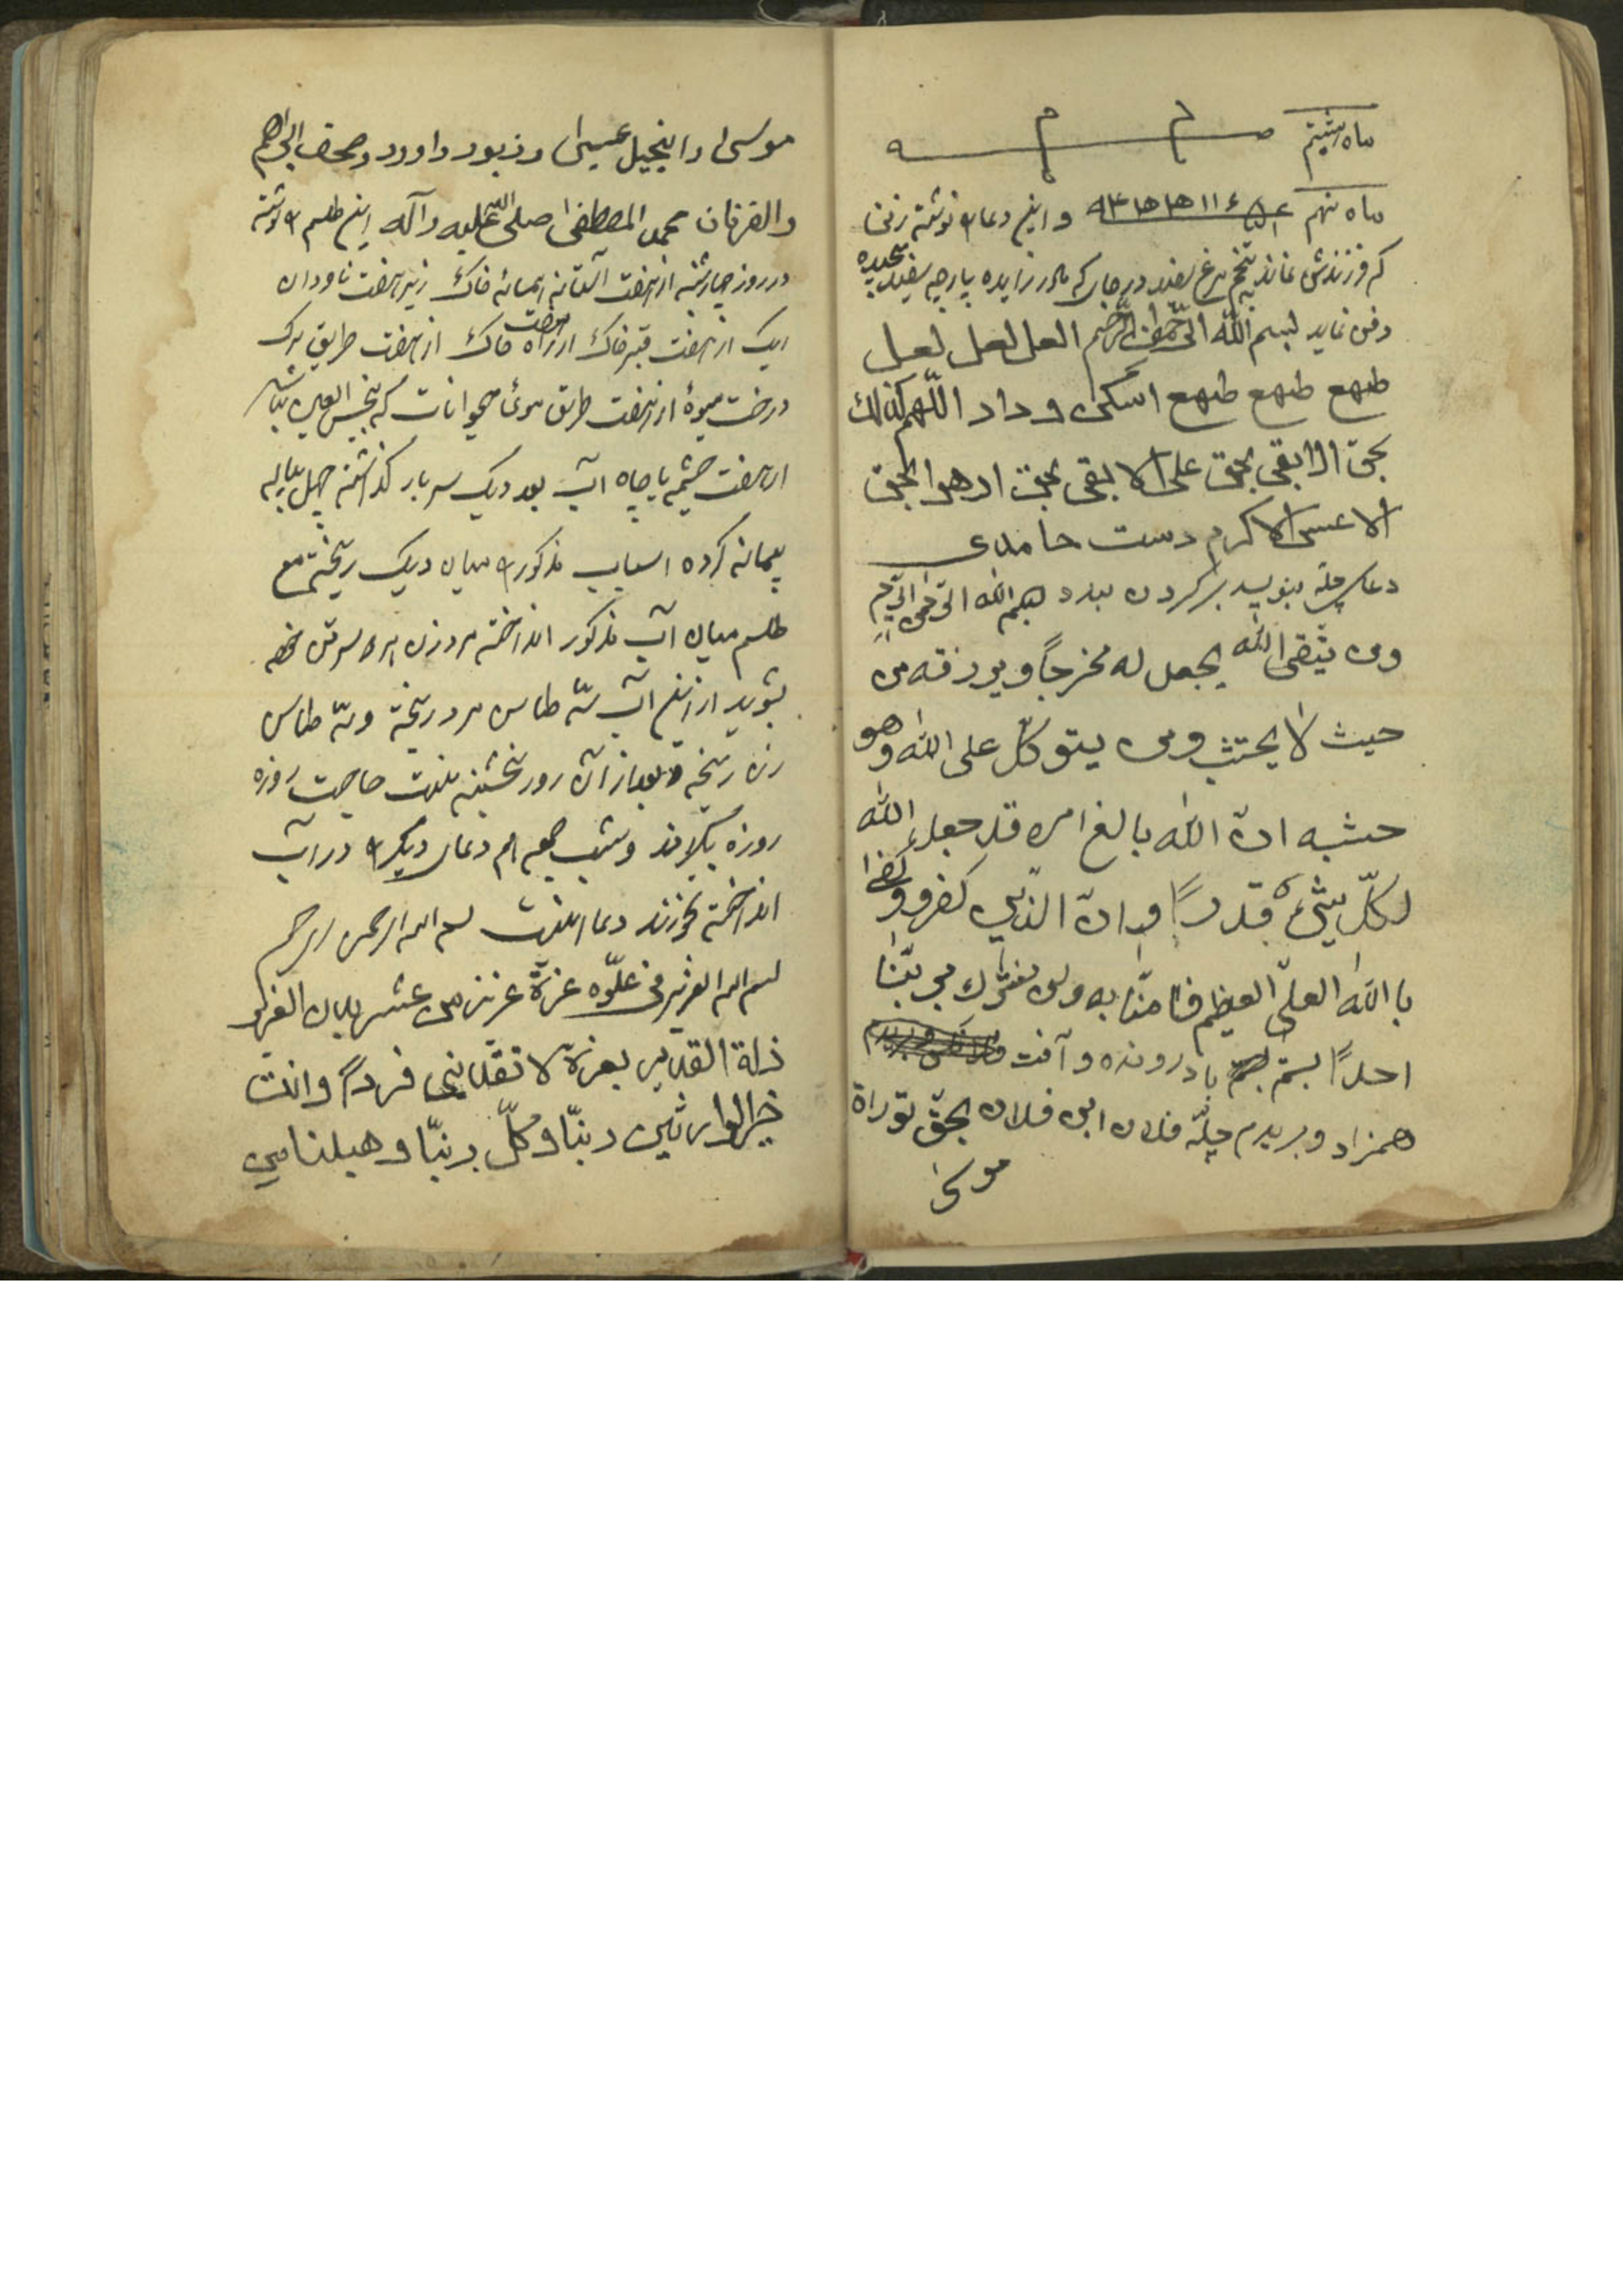 ماه هشتم
ماه نهم و این دعا را نوشته زنی
که فرزندش نماند بتخم مرغ سفید در جای که مادر زایده پارچه سفید پیچیده
دفن نماید بسم الله الرحمن الرحیم العل لعل لعل
طهع طهع طهع اسکی و داد اللهم کذلك
بحق الابقی بحق علی الا بقی بحق ادهوا بحق
الا عسی الاکرم دست حامدی
دعای چله بنویسد بر کردن بندد بسم الله الرحمن الرحیم
ومن يتقى الله يجعل له مخرجاً ويورزقه من
حيث لا يحتثب ومن يتوكّل على الله وهو
حثبه انّ الله بالغ امره قد جعل الله
لكلّ شيء قدراً وانّ الذين كفرو وكفرا
با الله العلىّ العظيم فامنّا به ولن نشرك بربّنا
احداً بستم باد رونده و آفت
همزاد و بریدم چلّه فلان ابن فلان بحقّ توراة
موسی
موسی و انجیل عیسی و زبور داوود و صحف ابراهیم
والفرقان محمد المصطفی صلی الله علیه و آله این طلسم را نوشته
در روز چهارشنبه از هفت آستانه همسائه خاک زیر هفت ناودان
از هفت قبر خاک از هفت راه خاک از هفت طریق برک
درخت میوهٔ از هفت طریق موی حیوانات که نجس العین نباشد
از هفت چشمه یا چاه آب بعد دیک سر بار کذاشته چهل پیاله
پیمانه کرده اسباب مذکور را میان دیک ریخته مع
طلسم میان آب مذکور انداخته مرد زن سر تن
بشوید از این آب سّه طاس مرد ریخته و سّه طاس
زن ریخته و بعد از آن روز پنجشنبه صاحب روزه
روزه بگیرند و شب جمعه هم دعای دیگر را در آب
انداخته بخورند دعا اینست بسم الله الرحمن الرحیم
بسم الله العزیز فی علوّه عزة عزیز من
ذلة القدير بعزة لا تذرنی فرداً وانت
خیر الوارثین ربنّا و كلّ ربنّا و هبلنا من